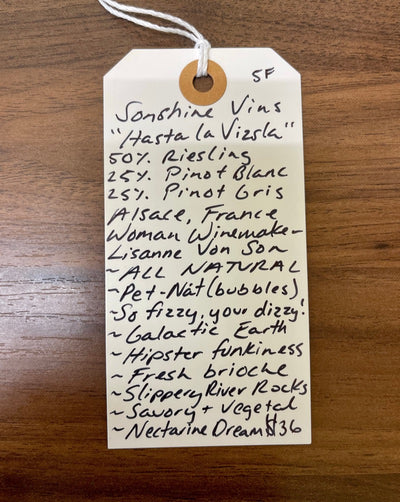 SF
Sonshine Vins
"Hasta la Vizsla"
50% Riesling
25% Pinot Blanc
25% Pinot Gris
Alsace, France
Woman Winemaker-
Lisanne Von Son
~ALL NATURAL
~Pet-Nät (bubbles)
~So fizzy, your dizzy!
~Galactic Earth
~Hipster funkiness
~Fresh brioche
~Slippery River Rocks
~Savory + Vegetal
~Nectarine Dream $36